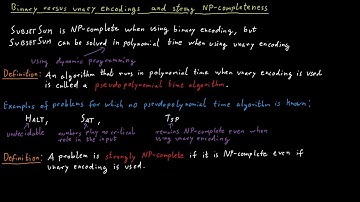 Binary versus unary encodings and strong NP-completeness
SubsetSum is NP-complete when using binary encoding, but
SubsetSum can be solved in polynomial time when using unary encoding
using dynamic programming
Definition: An algorithm that runs in polynomial time when unary encoding is used
is called a pseudopolynomial time algorithm.
Examples of problems for which no pseudopolynomial time algorithm is known:
Halt, Sat, Tsp
undecidable numbers play no critical remains NP-complete even when
role in the input using unary encoding
Definition: A problem is strongly NP-complete if it is NP-complete even if
unary encoding is used.